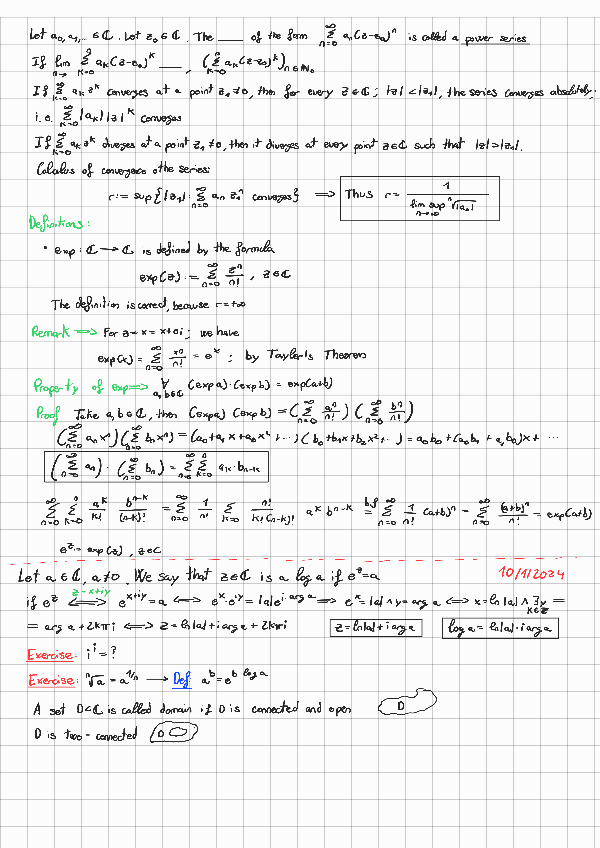 Let a₀, a₁, ... ∈ ℂ. Let z₀ ∈ ℂ. The ____ of the form ∑_{n=0}^{∞} aₙ(z-z₀)ⁿ is called a power series
If lim_{n→} ∑_{k=0} a_k(z-z₀)^k ____, (∑_{k=0} a_k(z-z₀)^k)_{n∈ℕ₀}
If ∑_{k=0}^{∞} a_k z^k converges at a point z₁≠0, then for every z∈ℂ; |z|<|z₁|, the series converges absolutely.
i.e. ∑_{k=0}^{∞} |a_k||z|^k converges
If ∑_{k=0}^{∞} a_k z^k diverges at a point z₁≠0, then it diverges at every point z∈ℂ such that |z|>|z₁|.
Calculus of convergence othe series:
r := sup{|z₁| : ∑_{n=0}^{∞} aₙ z₁ⁿ converges} ⟹ Thus r = 1 / (lim sup_{n→∞} ⁿ√|aₙ|)
Definitions:
• exp : ℂ → ℂ is defined by the formula
exp(z) := ∑_{n=0}^{∞} zⁿ/n! , z∈ℂ
The definition is correct, because r=+∞
Remark ⟹ For z = x = x+0i ; we have
exp(x) = ∑_{n=0}^{∞} xⁿ/n! = eˣ ; by Tayler's Theorem
Property of exp ⟹ ∀_{a,b∈ℂ} (exp a)·(exp b) = exp(a+b)
Proof Take a,b∈ℂ, then (exp a)(exp b) = (∑_{n=0}^{∞} aⁿ/n!)(∑_{n=0}^{∞} bⁿ/n!)
(∑_{n=0}^{∞} aₙxⁿ)(∑_{n=0}^{∞} bₙxⁿ) = (a₀+a₁x+a₂x²+...)(b₀+b₁x+b₂x²+...) = a₀b₀+(a₀b₁+a₁b₀)x+...
(∑_{n=0}^{∞} aₙ)·(∑_{n=0}^{∞} bₙ) = ∑_{n=0}^{∞} ∑_{k=0}^{n} a_k·b_{n-k}
∑_{n=0}^{∞} ∑_{k=0}^{n} a^k/k! b^{n-k}/(n-k)! = ∑_{n=0}^{∞} 1/n! ∑_{k=0} n!/(k!(n-k)!) a^k b^{n-k} = ∑_{n=0}^{∞} 1/n! (a+b)ⁿ = ∑_{n=0}^{∞} (a+b)ⁿ/n! = exp(a+b)
e^z = exp(z), z∈ℂ
Let a∈ℂ, a≠0. We say that z∈ℂ is a log a if e^z=a 10/1/2024
z=x+iy
if e^z ⟺ e^{x+iy}=a ⟺ e^x·e^{iy}=|a|e^{i·arg a} ⟹ e^x=|a| ∧ y=arg a ⟺ x=ln|a| ∧ ∃_{k∈ℤ} y =
= arg a + 2kπi ⟺ z=ln|a|+i arg a + 2kπi z=ln|a|+i arg a log a = ln|a|·i arg a
Exercise: i^i = ?
Exercise: ⁿ√a = a^{1/n} ⟶ Def: a^b = e^{b log a}
A set D⊂ℂ is called domain if D is connected and open D
D is two-connected D